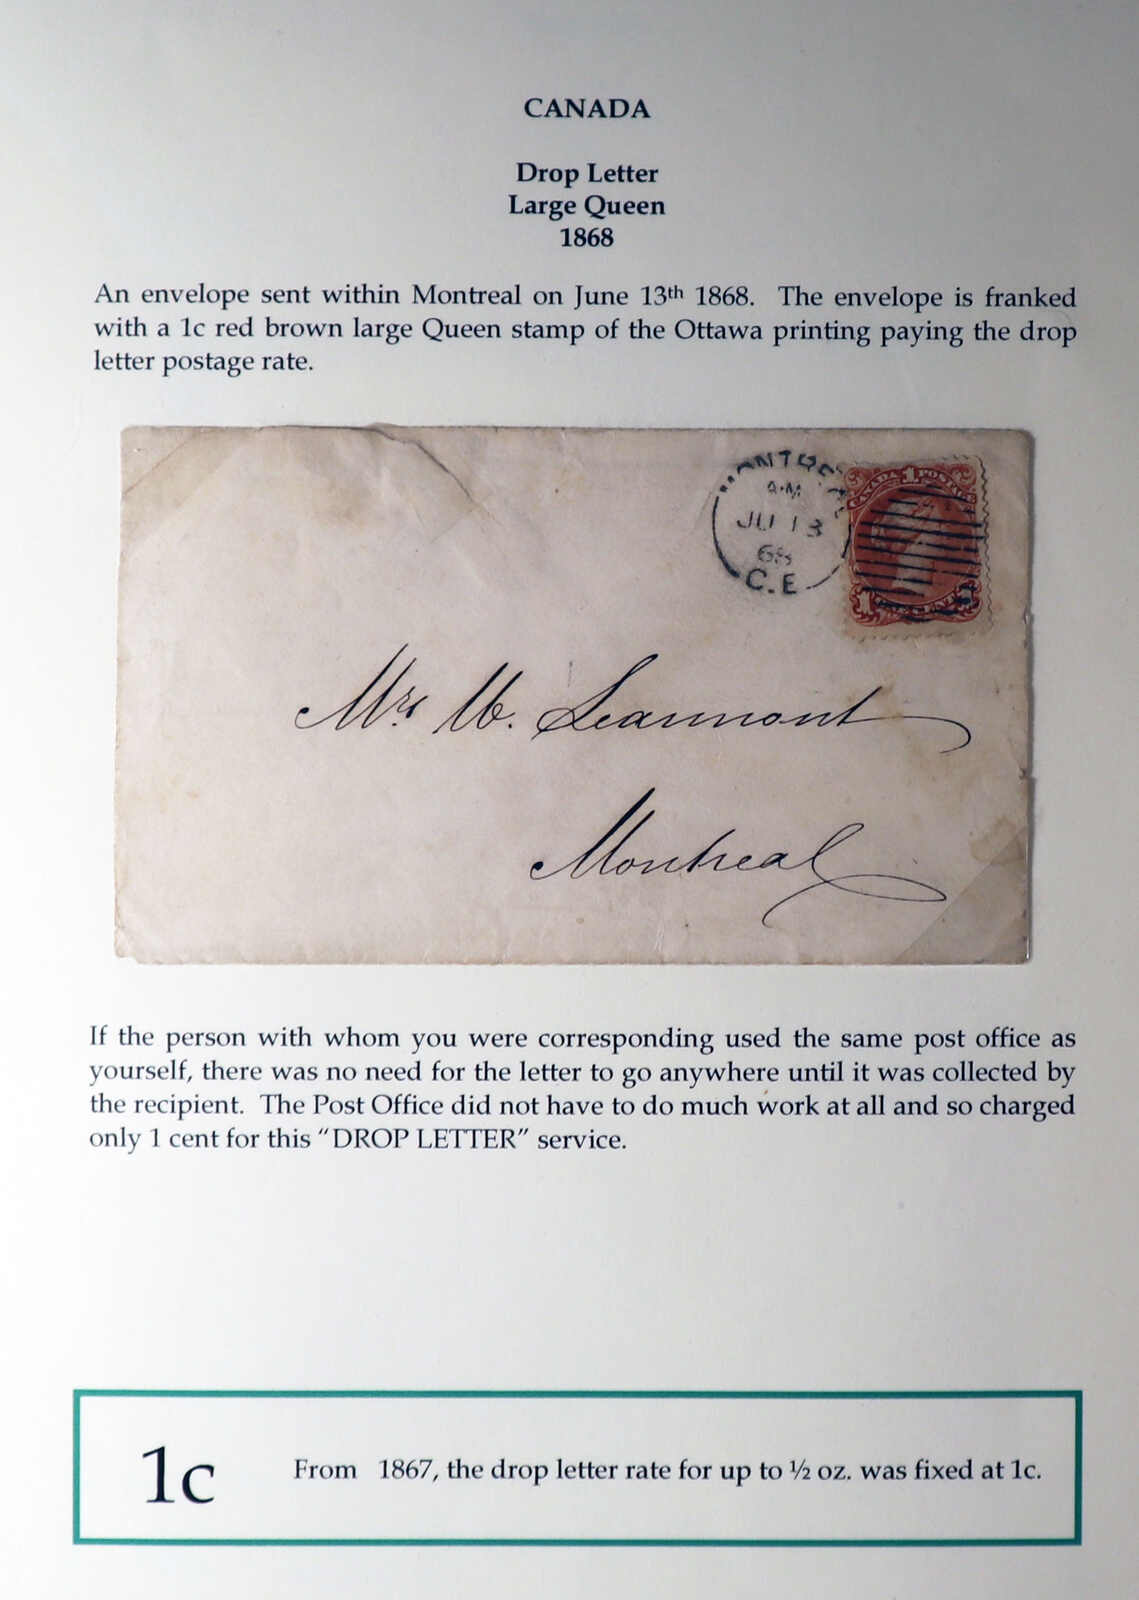 CANADA
Drop Letter
Large Queen
1868
An envelope sent within Montreal on June 13th 1868. The envelope is franked
with a 1c red brown large Queen stamp of the Ottawa printing paying the drop
letter postage rate.
MONTREAL
A·M
JU 13
68
C.E
CANADA 1 POSTAGE
1 1
Mrs W. Learmont
Montreal
If the person with whom you were corresponding used the same post office as
yourself, there was no need for the letter to go anywhere until it was collected by
the recipient. The Post Office did not have to do much work at all and so charged
only 1 cent for this "DROP LETTER" service.
1c
From 1867, the drop letter rate for up to ½ oz. was fixed at 1c.